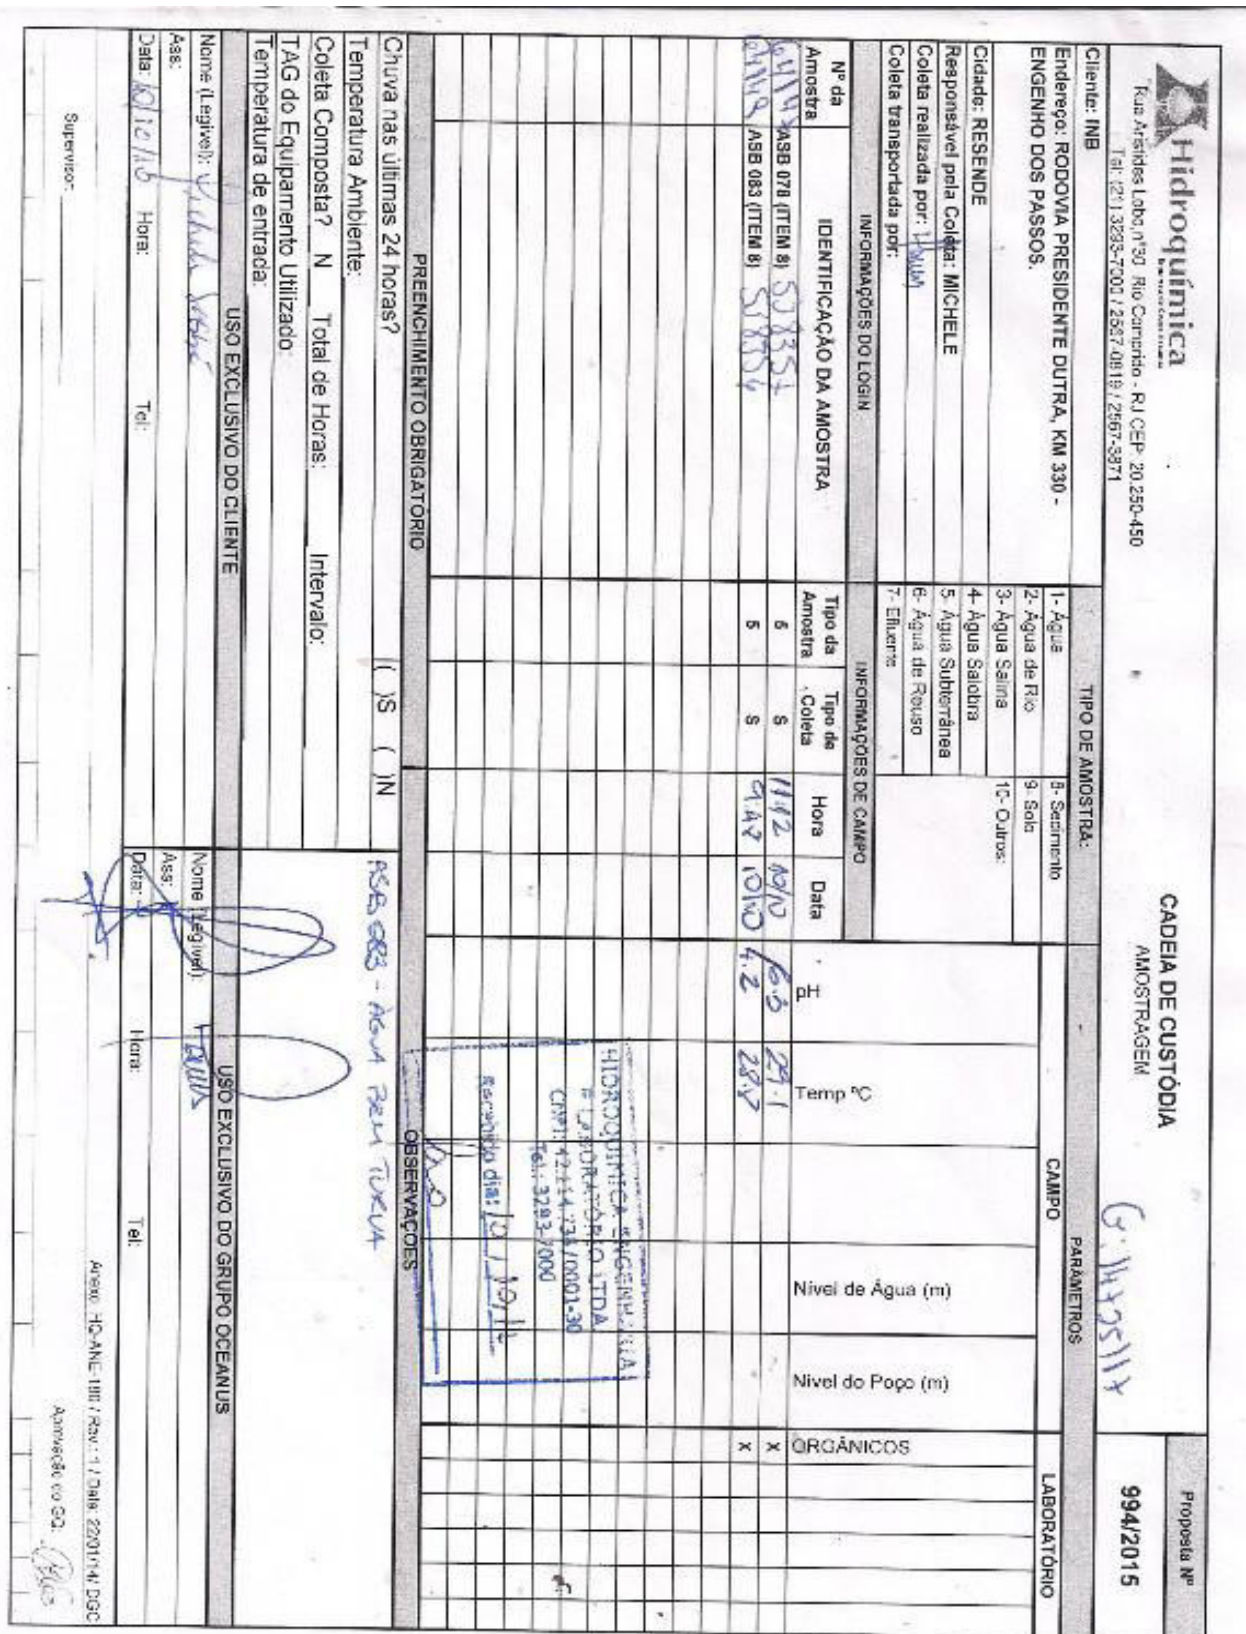 Hidroquímica
Rua Aristides Lobo,nº30 Rio Comprido - RJ CEP: 20.250-450
Tel: (21) 3293-7000 / 2567-0819 / 2567-3871
CADEIA DE CUSTÓDIA
AMOSTRAGEM
Proposta Nº
994/2015
Cliente: INB
Endereço: RODOVIA PRESIDENTE DUTRA, KM 330 -
ENGENHO DOS PASSOS.
Cidade: RESENDE
Responsável pela Coleta: MICHELE
Coleta realizada por:
Coleta transportada por:
TIPO DE AMOSTRA:
1- Água
2- Água de Rio
3- Água Salina
4- Água Salobra
5- Água Subterrânea
6- Água de Reuso
7- Efluente
8- Sedimento
9- Solo
10- Outros:
PARÂMETROS
CAMPO
LABORATÓRIO
INFORMAÇÕES DO LOGIN
INFORMAÇÕES DE CAMPO
Nº da Amostra
IDENTIFICAÇÃO DA AMOSTRA
Tipo da Amostra
Tipo de Coleta
Hora
Data
pH
Temp ºC
Nível de Água (m)
Nível do Poço (m)
ORGÂNICOS
ASB 078 (ITEM 8) 5 S 11:42 10/10 6.3 29.1 X
ASB 083 (ITEM 8) 5 S 10/10 4.2 X
HIDROQUIMICA ENGENHARIA
E LABORATÓRIO LTDA
Tel.: 3293-7000
Recebido dia:
PREENCHIMENTO OBRIGATÓRIO
OBSERVAÇÕES
Chuva nas últimas 24 horas? ( )S ( )N
Temperatura Ambiente:
Coleta Composta? N Total de Horas: Intervalo:
TAG do Equipamento Utilizado:
Temperatura de entrada:
ASB 083 - ÁGUA BEM TURVA
USO EXCLUSIVO DO CLIENTE
USO EXCLUSIVO DO GRUPO OCEANUS
Nome (Legível):
Ass:
Data: 10/10/16 Hora: Tel:
Nome (Legível):
Ass:
Data: Hora: Tel:
Anexo: HQ-ANE-180 / Rev.: 1 / Data: 22/01/14/ DGC
Supervisor:
Aprovação do GQ: